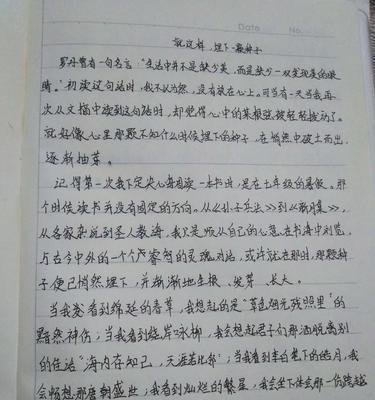 Date No.
就这样，埋下一颗种子
罗丹曾有一句名言：“生活中并不是缺少美，而是缺少一双发现美的眼
睛。”初读这句话时，我不以为然，没有放在心上。可当有一天当我再
次从文摘中读到这句话时，却觉得心中的某根弦被轻轻拨动了。
就好像心里那颗不知什么时候埋下的种子，在悄然中破土而出，
逐渐抽芽。
记得第一次我下定决心每周读一本书时，是在七年级的暑假。那
个时候读书并没有固定的方向。从《孙子兵法》到《朝花集》，
从名家杂说到圣人教诲，我只是顺从自己的心意，在书海中浏览，
与古今中外的一个个睿智的灵魂对话，或许就在那时，那颗种
子便已悄然埋下，并渐渐地生根、发芽、长大。
当我看到绵延的春草，我想起的是“草色烟光残照里”的
黯然神伤；当我看到堤岸咏柳，我会想起君子们那洒脱离别
的佳话“海内存知己，天涯若比邻”；当我看到李白笔下的皓月，我
会畅想那唐朝盛世；我看到灿烂的繁星，我会坐下体会那一份跨越